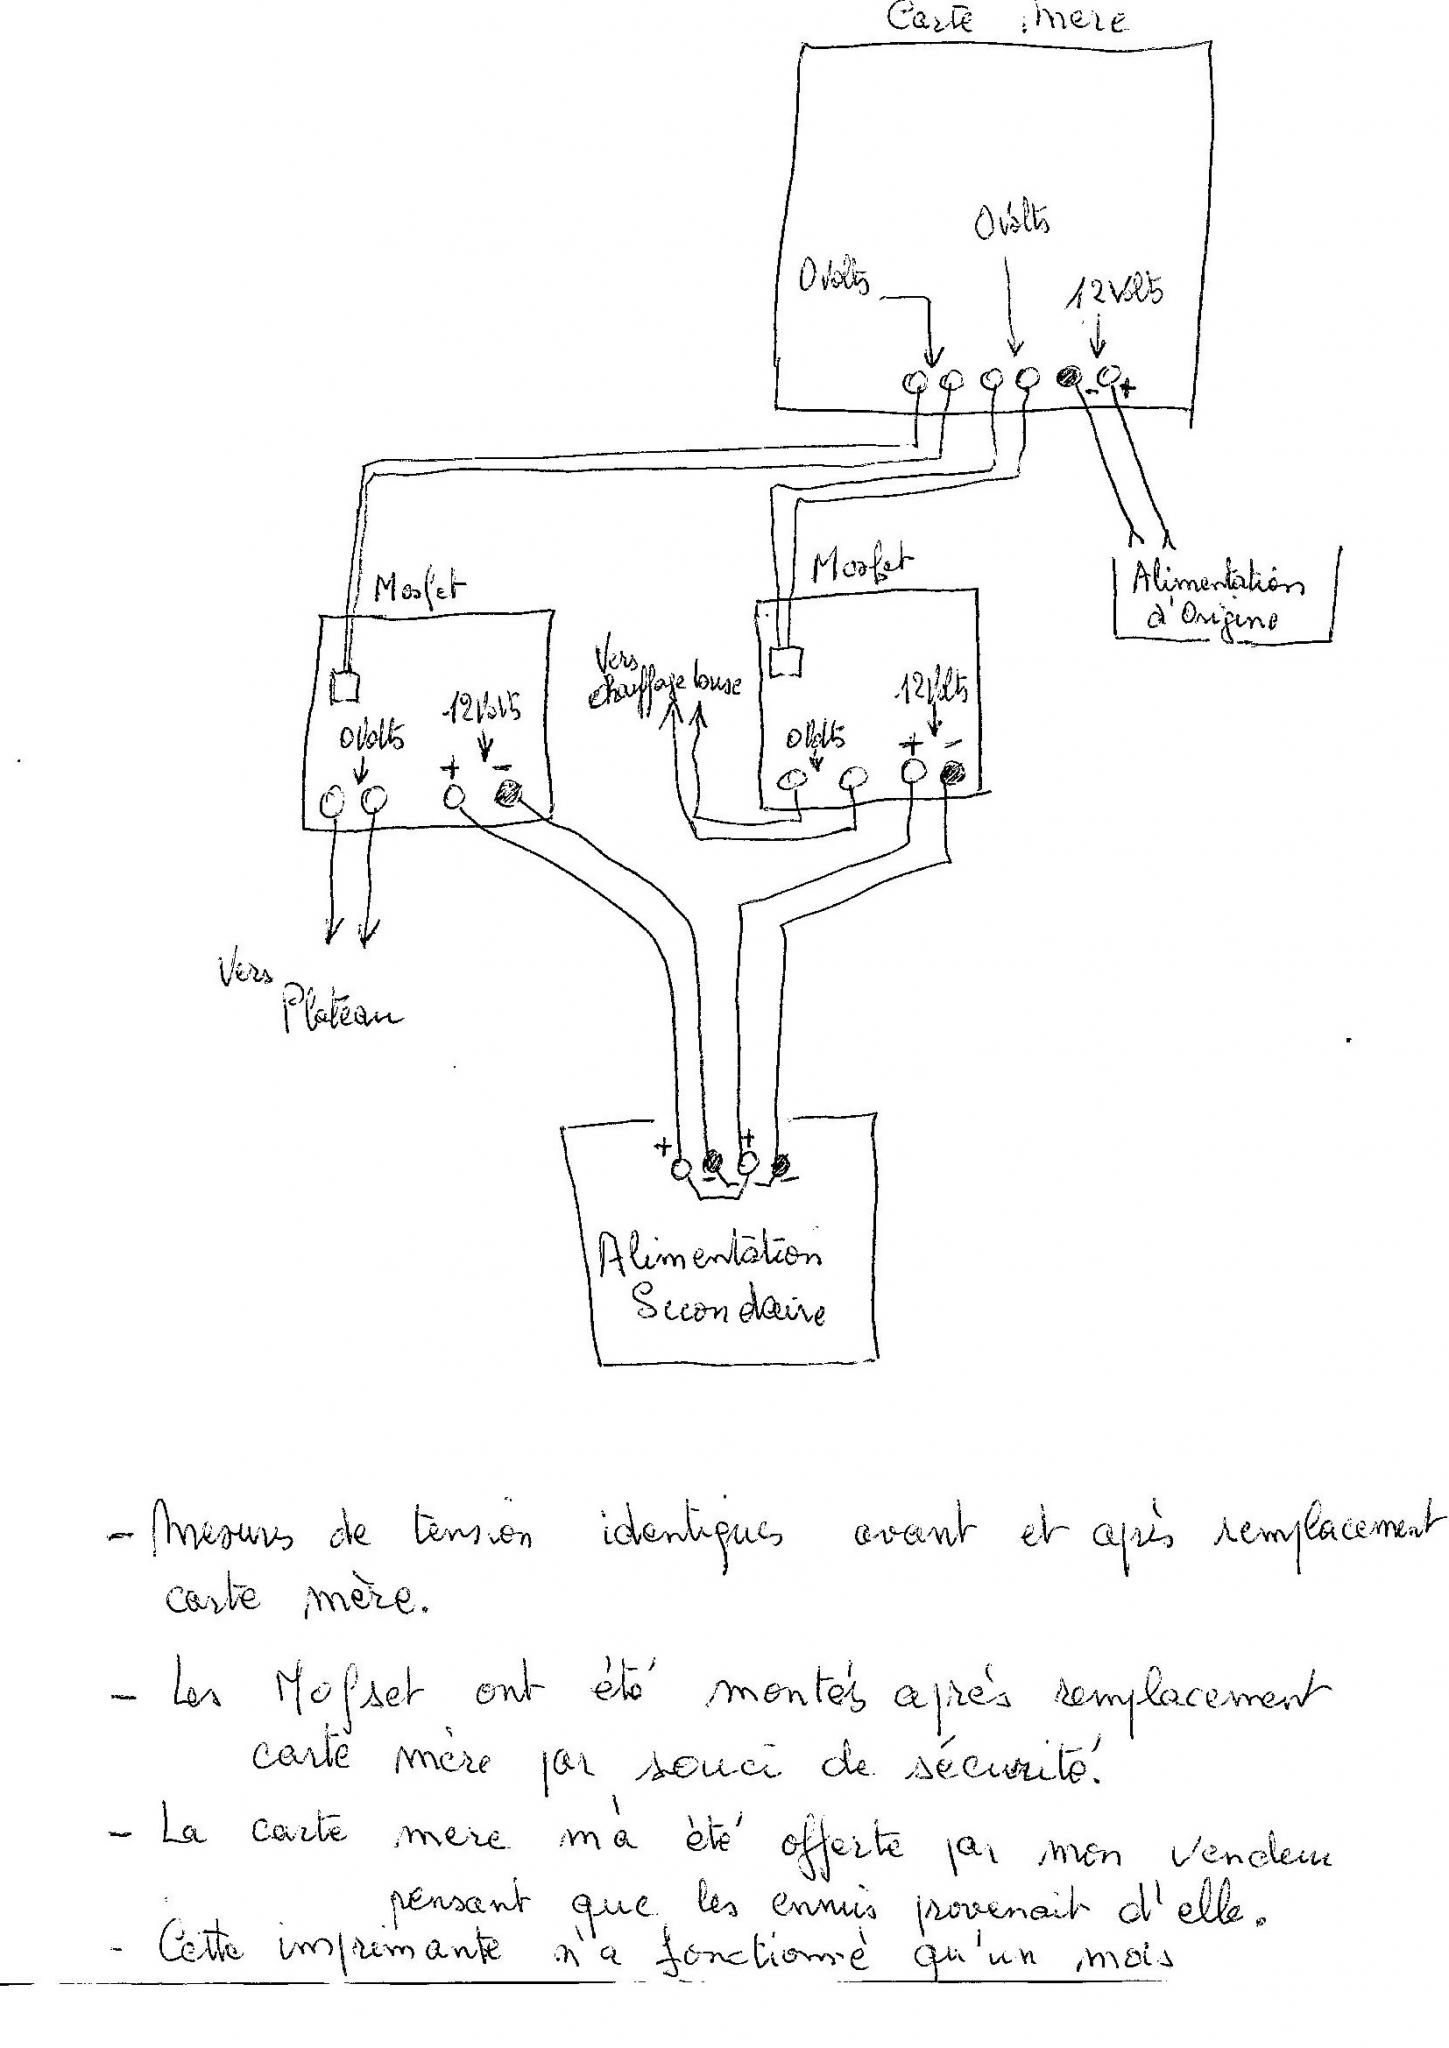 Carte mere
0 Volts
0 Volts
12 Volts
- +
Alimentation
d'Origine
Mosfet
12 Volts
0 Volts
+ -
Vers
Plateau
Mosfet
Vers
chauffage buse
12 Volts
0 Volts
+ -
+ - + -
Alimentation
Secondaire
- Mesures de tension identiques avant et après remplacement
carte mère.
- Les Mofset ont été montés après remplacement
carte mère par souci de sécurité.
- La carte mere m'a été offerte par mon vendeur
pensant que les ennuis provenait d'elle.
- Cette imprimante n'a fonctionné qu'un mois